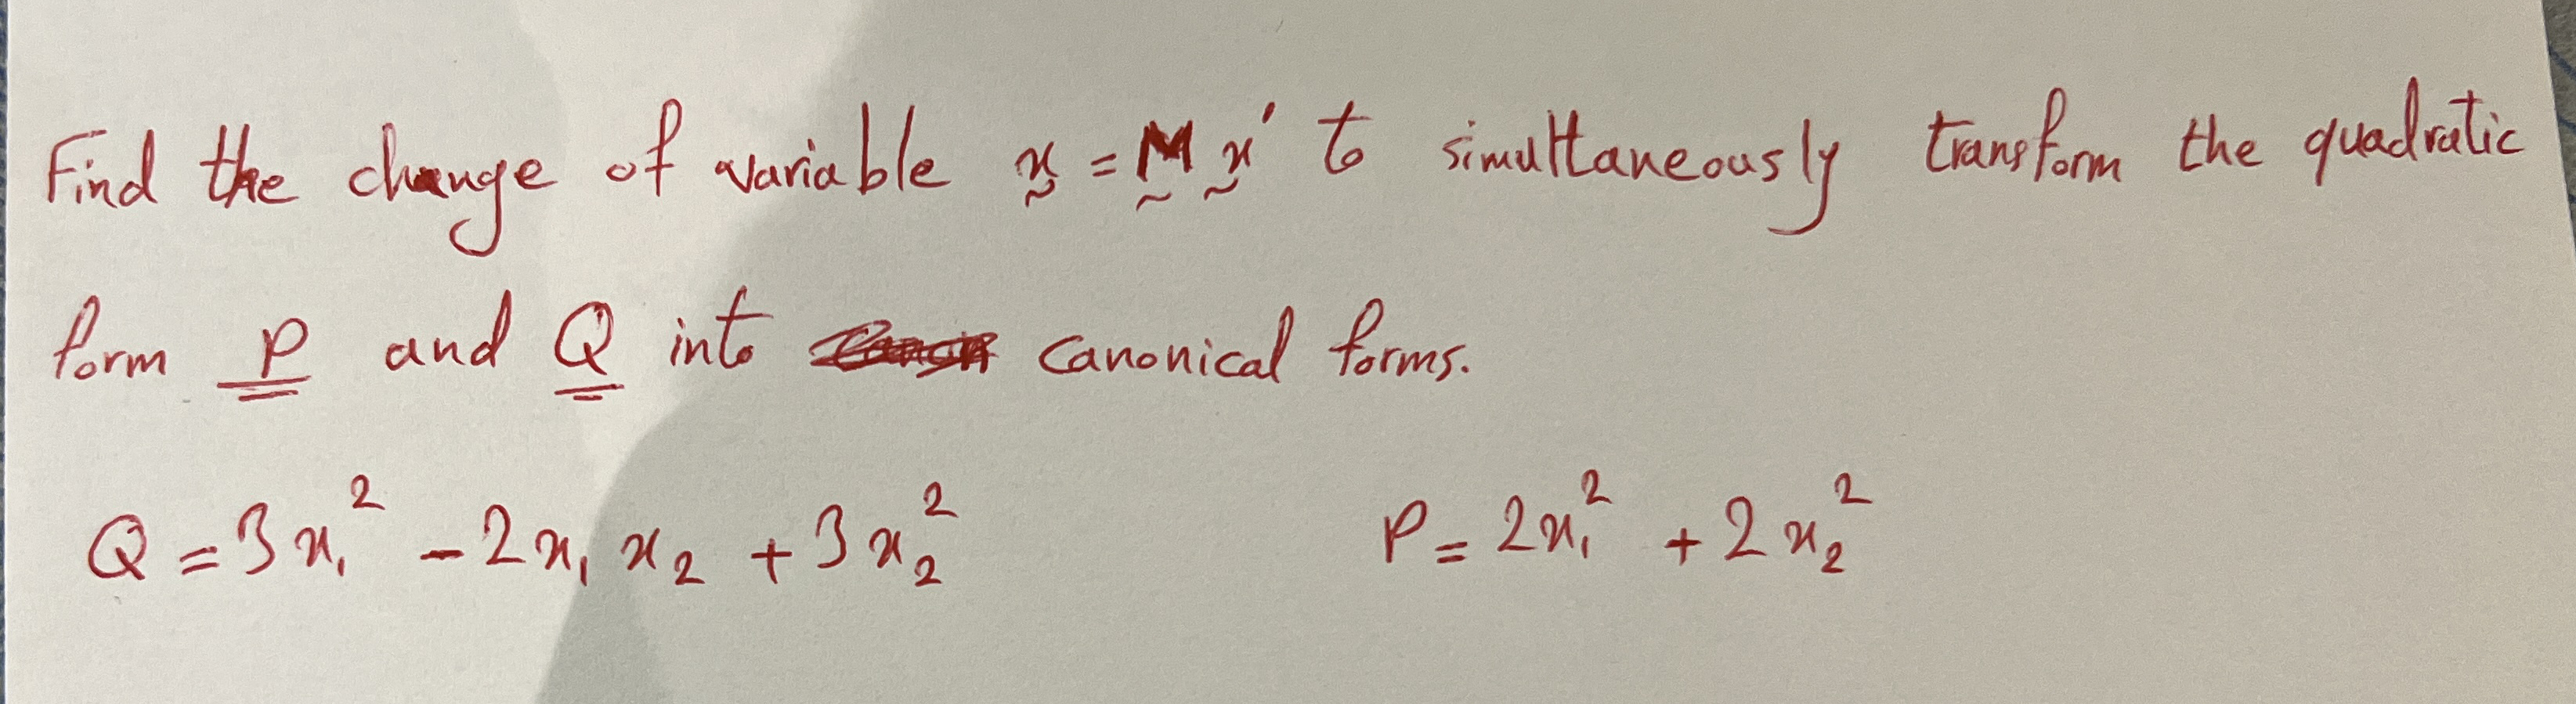 Find the change of variable x = M x' to simultaneously transform the quadratic
form P and Q into canonical forms.
Q = 3x₁² - 2x₁x₂ + 3x₂² P = 2x₁² + 2x₂²